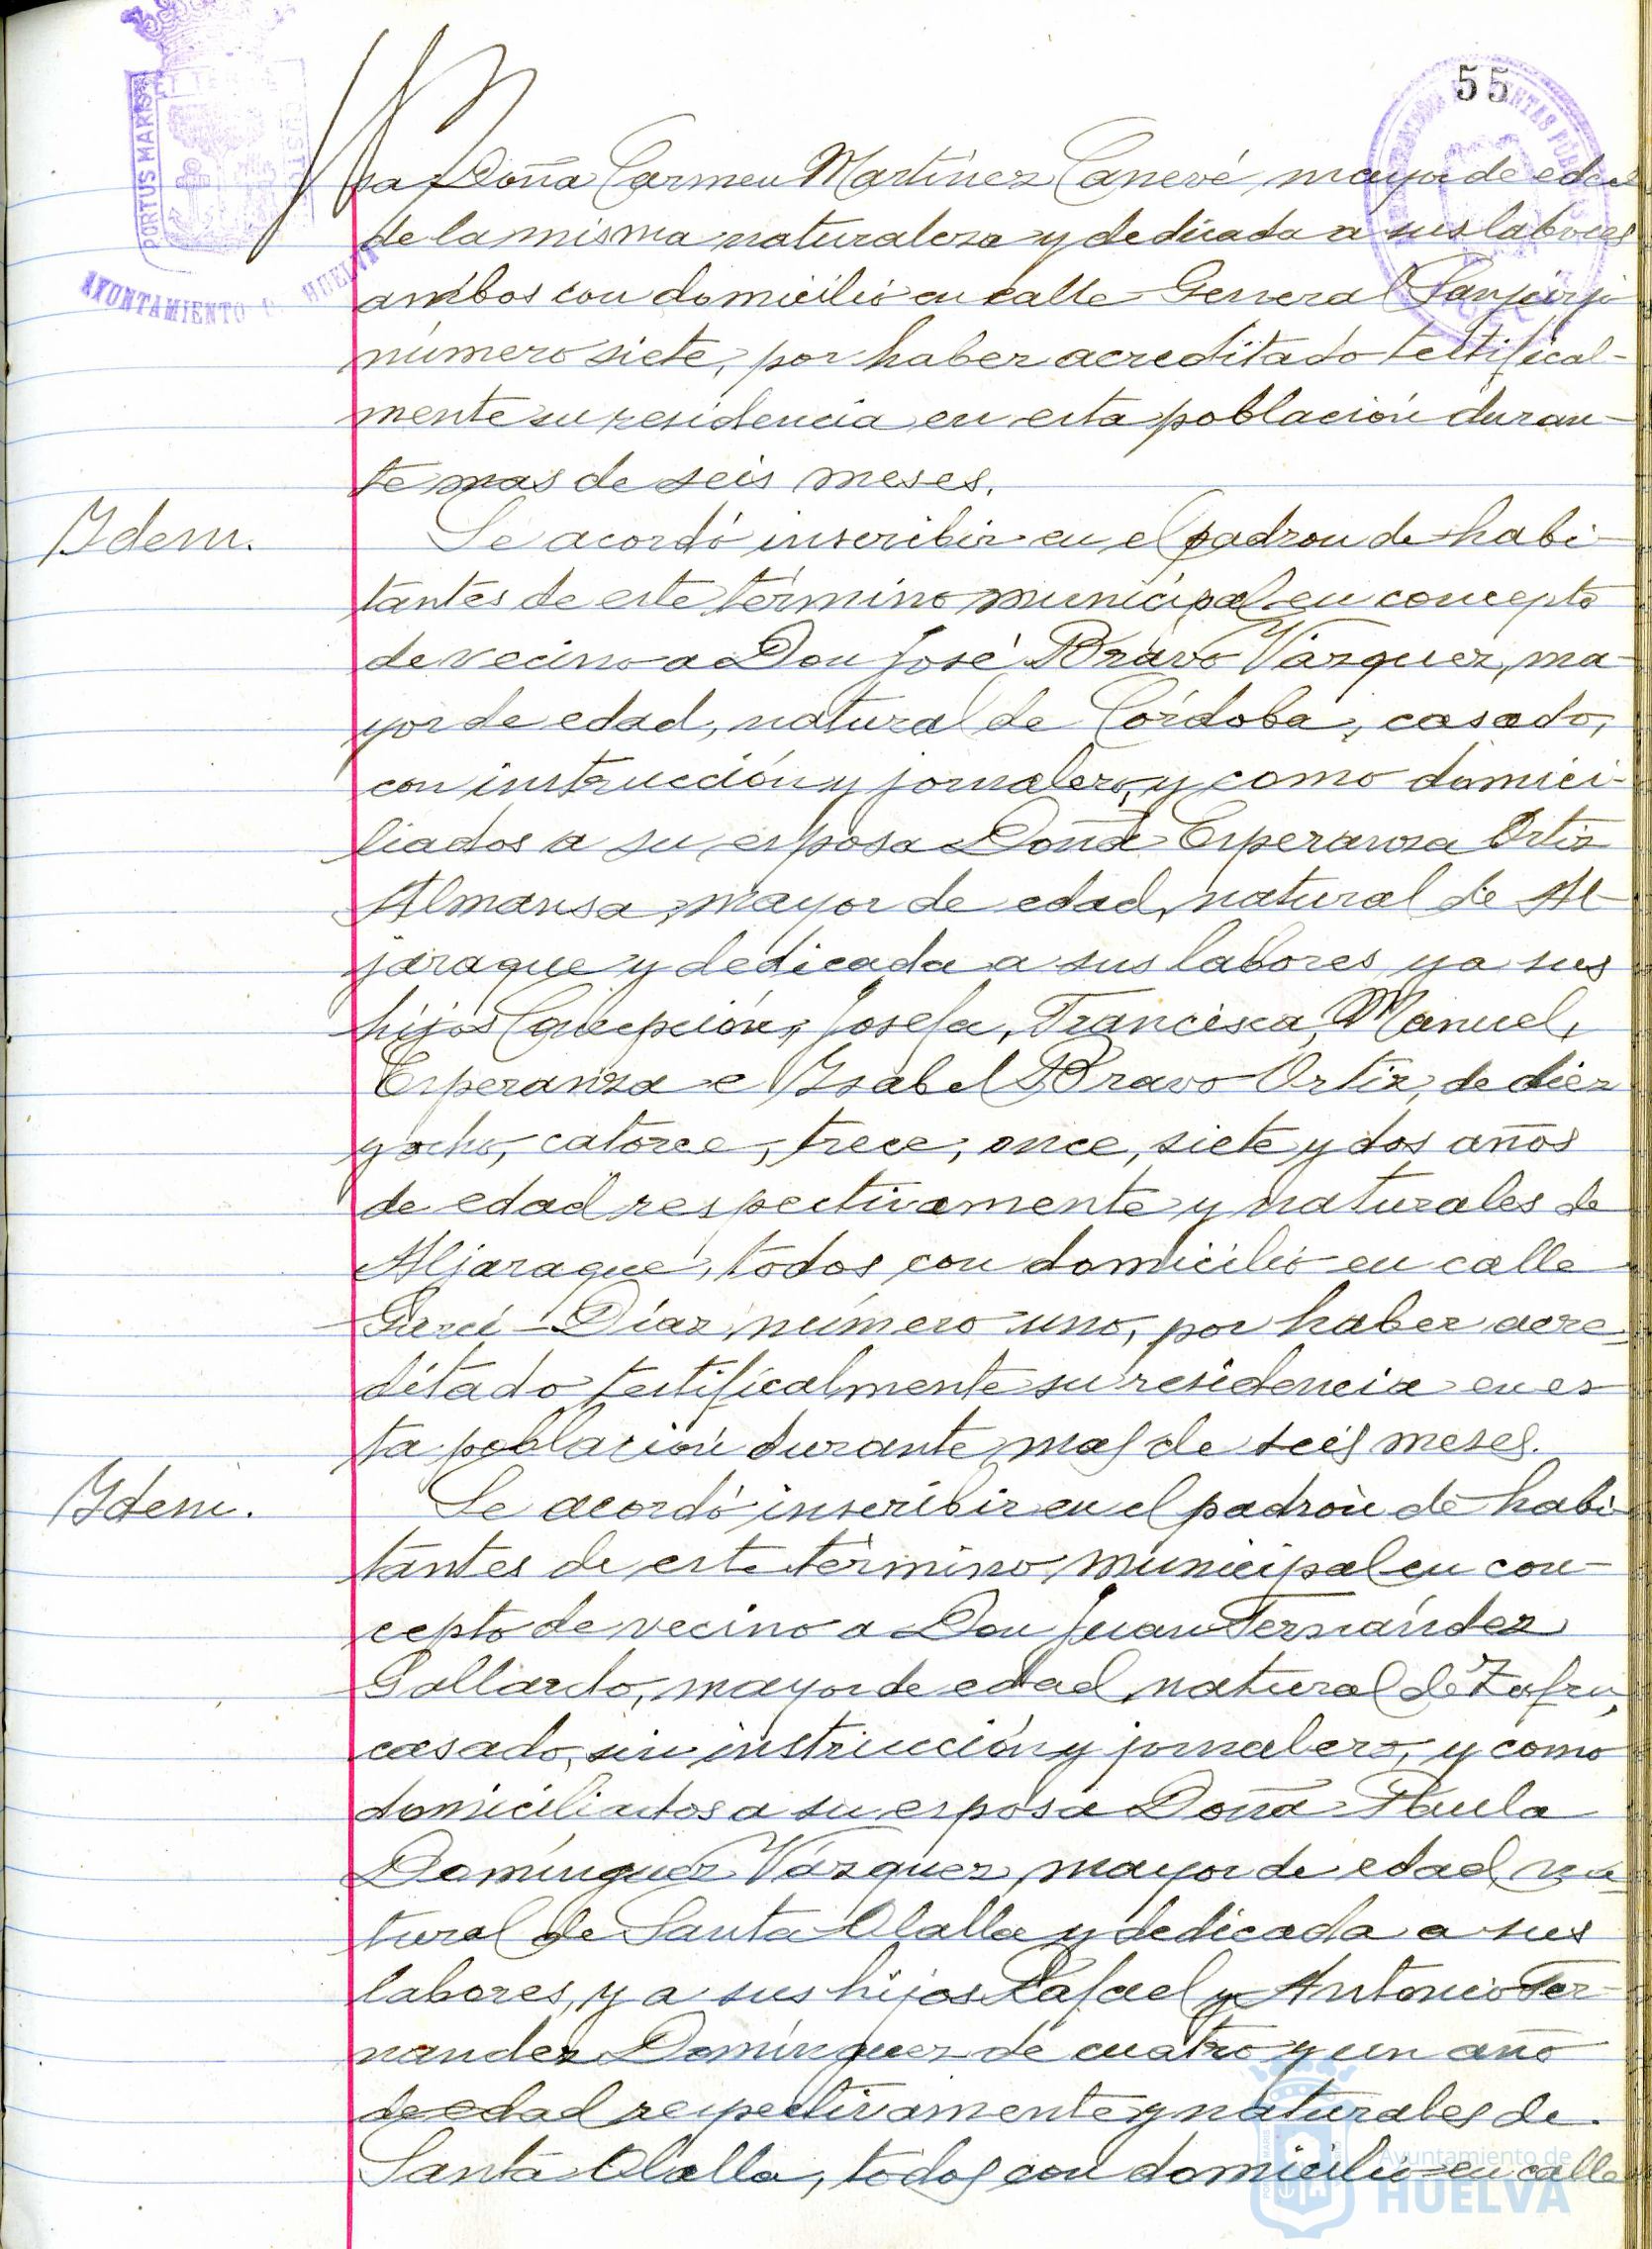 55
PORTUS MARIS ET TERRAE CUSTODIA
AYUNTAMIENTO DE HUELVA
sa Doña Carmen Martínez Canevé, mayor de edad
de la misma naturaleza y dedicada a sus labores
ambos con domicilio en calle General Sanjurjo
número siete, por haber acreditado testifical-
mente su residencia en esta población duran-
te mas de seis meses.
Ydem.
Se acordó inscribir en el padron de habi-
tantes de este término municipal en concepto
de vecino a Don José Bravo Vázquez, ma-
yor de edad, natural de Córdoba, casado,
con instrucción y jornalero, y como domici-
liados a su esposa Doña Esperanza Ortiz
Almansa, mayor de edad, natural de Al-
jaraque y dedicada a sus labores, y a sus
hijos Concepción, Josefa, Francisca, Manuel,
Esperanza e Ysabel Bravo Ortiz, de diez
y ocho, catorce, trece, once, siete y dos años
de edad respectivamente y naturales de
Aljaraque, todos con domicilio en calle
Garci-Díaz número uno, por haber acre-
ditado testificalmente su residencia en es
ta población durante mas de seis meses.
Ydem.
Se acordó inscribir en el padrón de habi-
tantes de este término municipal en con-
cepto de vecino a Don Juan Fernández
Gallardo, mayor de edad, natural de Zafra,
casado, sin instrucción y jornalero, y como
domiciliados a su esposa Doña Paula
Domínguez Vázquez, mayor de edad, na-
tural de Santa Olalla y dedicada a sus
labores, y a sus hijos Rafael y Antonio Fer-
nandez Domínguez de cuatro y un año
de edad respectivamente y naturales de
Santa Olalla, todos con domicilio en calle
Ayuntamiento de
HUELVA